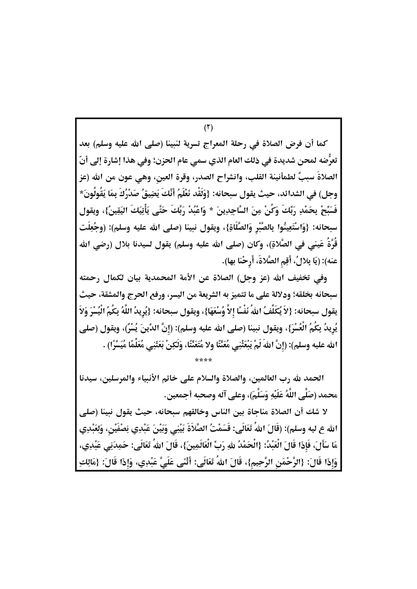 (٢)
كما أن فرض الصلاة في رحلة المعراج تسرية لنبينا (صلى الله عليه وسلم) بعد
تعرُّضه لمحن شديدة في ذلك العام الذي سمي عام الحزن؛ وفي هذا إشارة إلى أنّ
الصلاةَ سببٌ لطمأنينة القلب، وانشراح الصدر، وقرة العين، وهي عون من الله (عز
وجل) في الشدائد، حيث يقول سبحانه: {وَلَقَدْ نَعْلَمُ أَنَّكَ يَضِيقُ صَدْرُكَ بِمَا يَقُولُونَ*
فَسَبِّحْ بِحَمْدِ رَبِّكَ وَكُنْ مِنَ السَّاجِدِينَ * وَاعْبُدْ رَبَّكَ حَتَّى يَأْتِيَكَ الْيَقِينُ}، ويقول
سبحانه: {وَاسْتَعِينُوا بِالصَّبْرِ وَالصَّلَاةِ}، ويقول نبينا (صلى الله عليه وسلم): (وجُعِلَت
قُرَّةُ عَيْنِي في الصَّلاةِ)، وكان (صلى الله عليه وسلم) يقول لسيدنا بلال (رضي الله
عنه): (يَا بِلالُ، أَقِمِ الصَّلاةَ، أَرِحْنَا بِها).
وفي تخفيف الله (عز وجل) الصلاة عن الأمة المحمدية بيان لكمال رحمته
سبحانه بخلقه؛ ودلالة على ما تتميز به الشريعة من اليسر، ورفع الحرج والمشقة، حيث
يقول سبحانه: {لَا يُكَلِّفُ اللَّهُ نَفْسًا إِلَّا وُسْعَهَا}، ويقول سبحانه: {يُرِيدُ اللَّهُ بِكُمُ الْيُسْرَ وَلَا
يُرِيدُ بِكُمُ الْعُسْرَ}، ويقول نبينا (صلى الله عليه وسلم): (إِنَّ الدِّينَ يُسْرٌ)، ويقول (صلى
الله عليه وسلم): (إِنَّ اللهَ لَمْ يَبْعَثْنِي مُعَنِّتًا ولا مُتَعَنِّتًا، وَلَكِنْ بَعَثَنِي مُعَلِّمًا مُيَسِّرًا) .
****
الحمد لله رب العالمين، والصلاة والسلام على خاتم الأنبياء والمرسلين، سيدنا
محمد (صَلَّى اللهُ عَلَيْهِ وَسَلَّمَ)، وعلى آله وصحبه أجمعين.
لا شك أن الصلاة مناجاة بين الناس وخالقهم سبحانه، حيث يقول نبينا (صلى
الله ع ليه وسلم): (قَالَ اللهُ تَعَالَى: قَسَمْتُ الصَّلاةَ بَيْنِي وَبَيْنَ عَبْدِي نِصْفَيْنِ، وَلِعَبْدِي
مَا سَأَلَ، فَإِذَا قَالَ الْعَبْدُ: {الْحَمْدُ للهِ رَبِّ الْعَالَمِينَ}، قَالَ اللهُ تَعَالَى: حَمِدَنِي عَبْدِي،
وَإِذَا قَالَ: {الرَّحْمَنِ الرَّحِيمِ}، قَالَ اللهُ تَعَالَى: أَثْنَى عَلَيَّ عَبْدِي، وَإِذَا قَالَ: {مَالِكِ